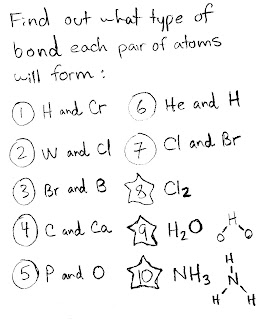 Find out what type of
bond each pair of atoms
will form :
① H and Cr
② W and Cl
③ Br and B
④ C and Ca
⑤ P and O
⑥ He and H
⑦ Cl and Br
8 Cl₂
9 H₂O H O O
10 NH₃ H N H H